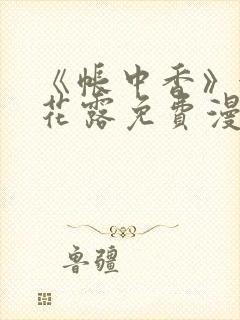 《帐中香》
花露免费漫
鲁疆